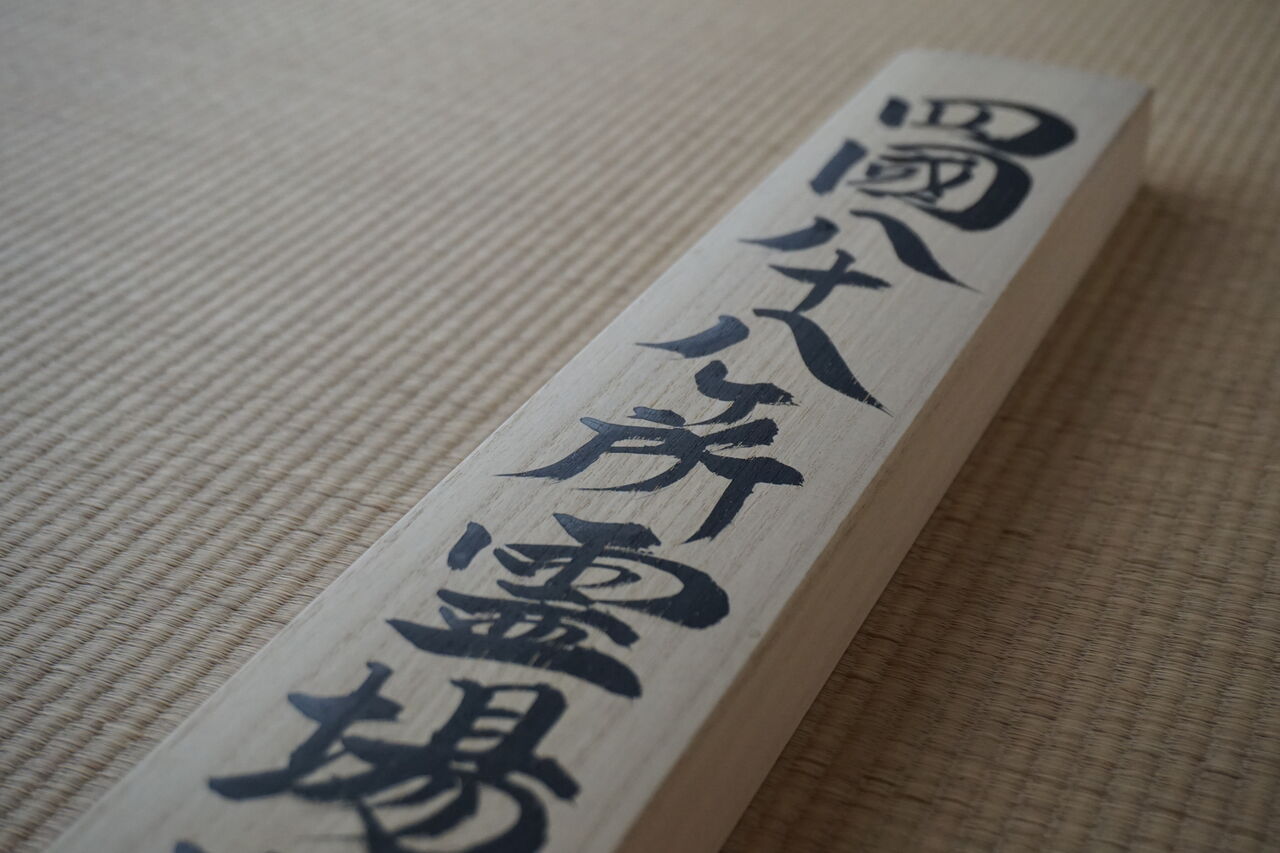 四國八十八ヶ所霊場